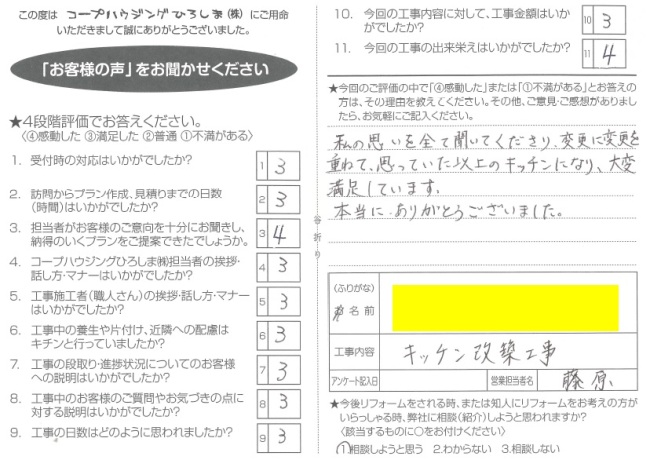 この度は コープハウジングひろしま(株) にご用命
いただきまして誠にありがとうございました。
「お客様の声」をお聞かせください
★4段階評価でお答えください。
〈④感動した ③満足した ②普通 ①不満がある〉
1. 受付時の対応はいかがでしたか？ 1 3
2. 訪問からプラン作成、見積りまでの日数
(時間)はいかがでしたか？ 2 3
3. 担当者がお客様のご意向を十分にお聞きし、
納得のいくプランをご提案できたでしょうか。 3 4
4. コープハウジングひろしま㈱担当者の挨拶・
話し方・マナーはいかがでしたか？ 4 3
5. 工事施工者(職人さん)の挨拶・話し方・マナー
はいかがでしたか？ 5 3
6. 工事中の養生や片付け、近隣への配慮は
キチンと行っていましたか？ 6 3
7. 工事の段取り・進捗状況についてのお客様
への説明はいかがでしたか？ 7 3
8. 工事中のお客様のご質問やお気づきの点に
対する説明はいかがでしたか？ 8 3
9. 工事の日数はどのように思われましたか？ 9 3
谷折り
10. 今回の工事内容に対して、工事金額はいか
がでしたか？ 10 3
11. 今回の工事の出来栄えはいかがでしたか？ 11 4
★今回のご評価の中で「④感動した」または「①不満がある」とお答えの
方は、その理由を教えてください。その他、ご意見・ご感想がありました
ら、お気軽にご記入ください。
私の思いを全て聞いてくださり、変更に変更を
重ねて、思っていた以上のキッチンになり、大変
満足しています。
本当に ありがとうございました。
(ふりがな)
お名前
工事内容 キッチン改築工事
アンケート記入日 営業担当者名 藤原
★今後リフォームをされる時、または知人にリフォームをお考えの方が
いらっしゃる時、弊社に相談(紹介)しようと思われますか？
〈該当するものに○をお付けください〉
1.相談しようと思う 2.わからない 3.相談しない